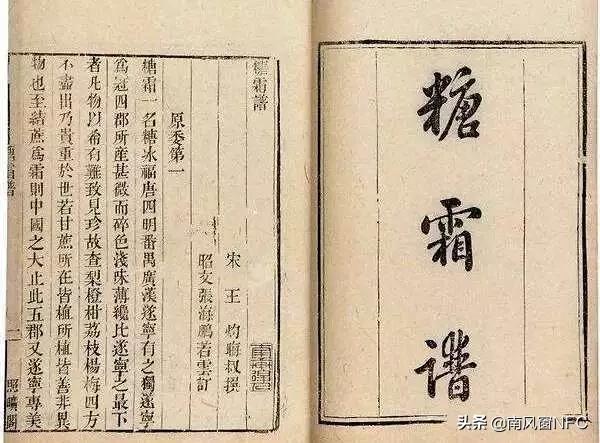 糖霜譜
糖霜譜
宋 王 灼晦叔撰
昭文張海鵬若雲訂
原委第一
糖霜一名糖冰福唐四明番禺廣漢遂寧有之獨遂寧
爲冠四郡所產甚微而碎色淺味薄纔比遂寧之最下
者凡物以希有難致見珍故查梨橙柑荔枝楊梅四方
不盡出乃貴重於世若甘蔗所在皆植所植皆善非異
物也至結蔗爲霜則中國之大止此五郡又遂寧專美
糖霜譜
一
照曠閣
头条 @南风窗NFC